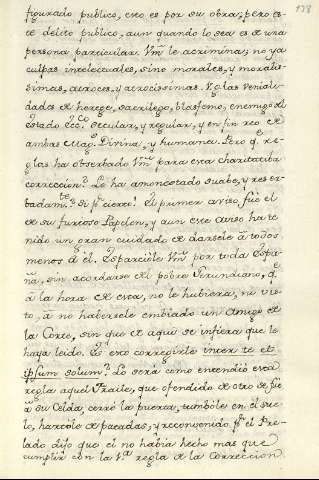 138
figurado publico, esto es por su obra; pero es-
te delito publico, aun quando lo sea es de una
persona particular. Vm.d le acrimina; no ya
culpas intelectuales, sino morales, y moralis-
simas, atroces, y atrocissimas. Uglas veniali-
dades de herege, sacrilego, blasfemo, enemigo del
Estado Ecc.co secular, y regular, y en fin reo de
ambas Mag.s Divina, y humana. Pero q.e re-
glas ha obserbado Vm.d para esta charitatiba
correccion? Le ha amonestado suabe, y reser-
badam.te? Si p.r cierto! El primer aviso fue el
de su furioso Papelon, y aun este aviso ha te-
nido un gran cuidado de darsele à todos
menos à el. Esparciòle Vm.d por toda Espa-
ña, sin acordarse del pobre Gerundiano, q.e
à la hora de esta, no le hubiera, ni vis-
to, à no habersele embiado un Amigo de
la Corte, sin que de aqui se infiera que le
haya leido. Es esto corregirle inter te et
ipsum solum? Lo serà como entendiò esta
regla aquel Fraile, que ofendido de otro se fue
à su Celda, cerrò la puerta, tumbòle en el sue-
lo, hartòle de patadas, y reconvenido p.r el Pre-
lado dijo que el no habia hecho mas que
cumplir con la 1.a regla de la Correccion.